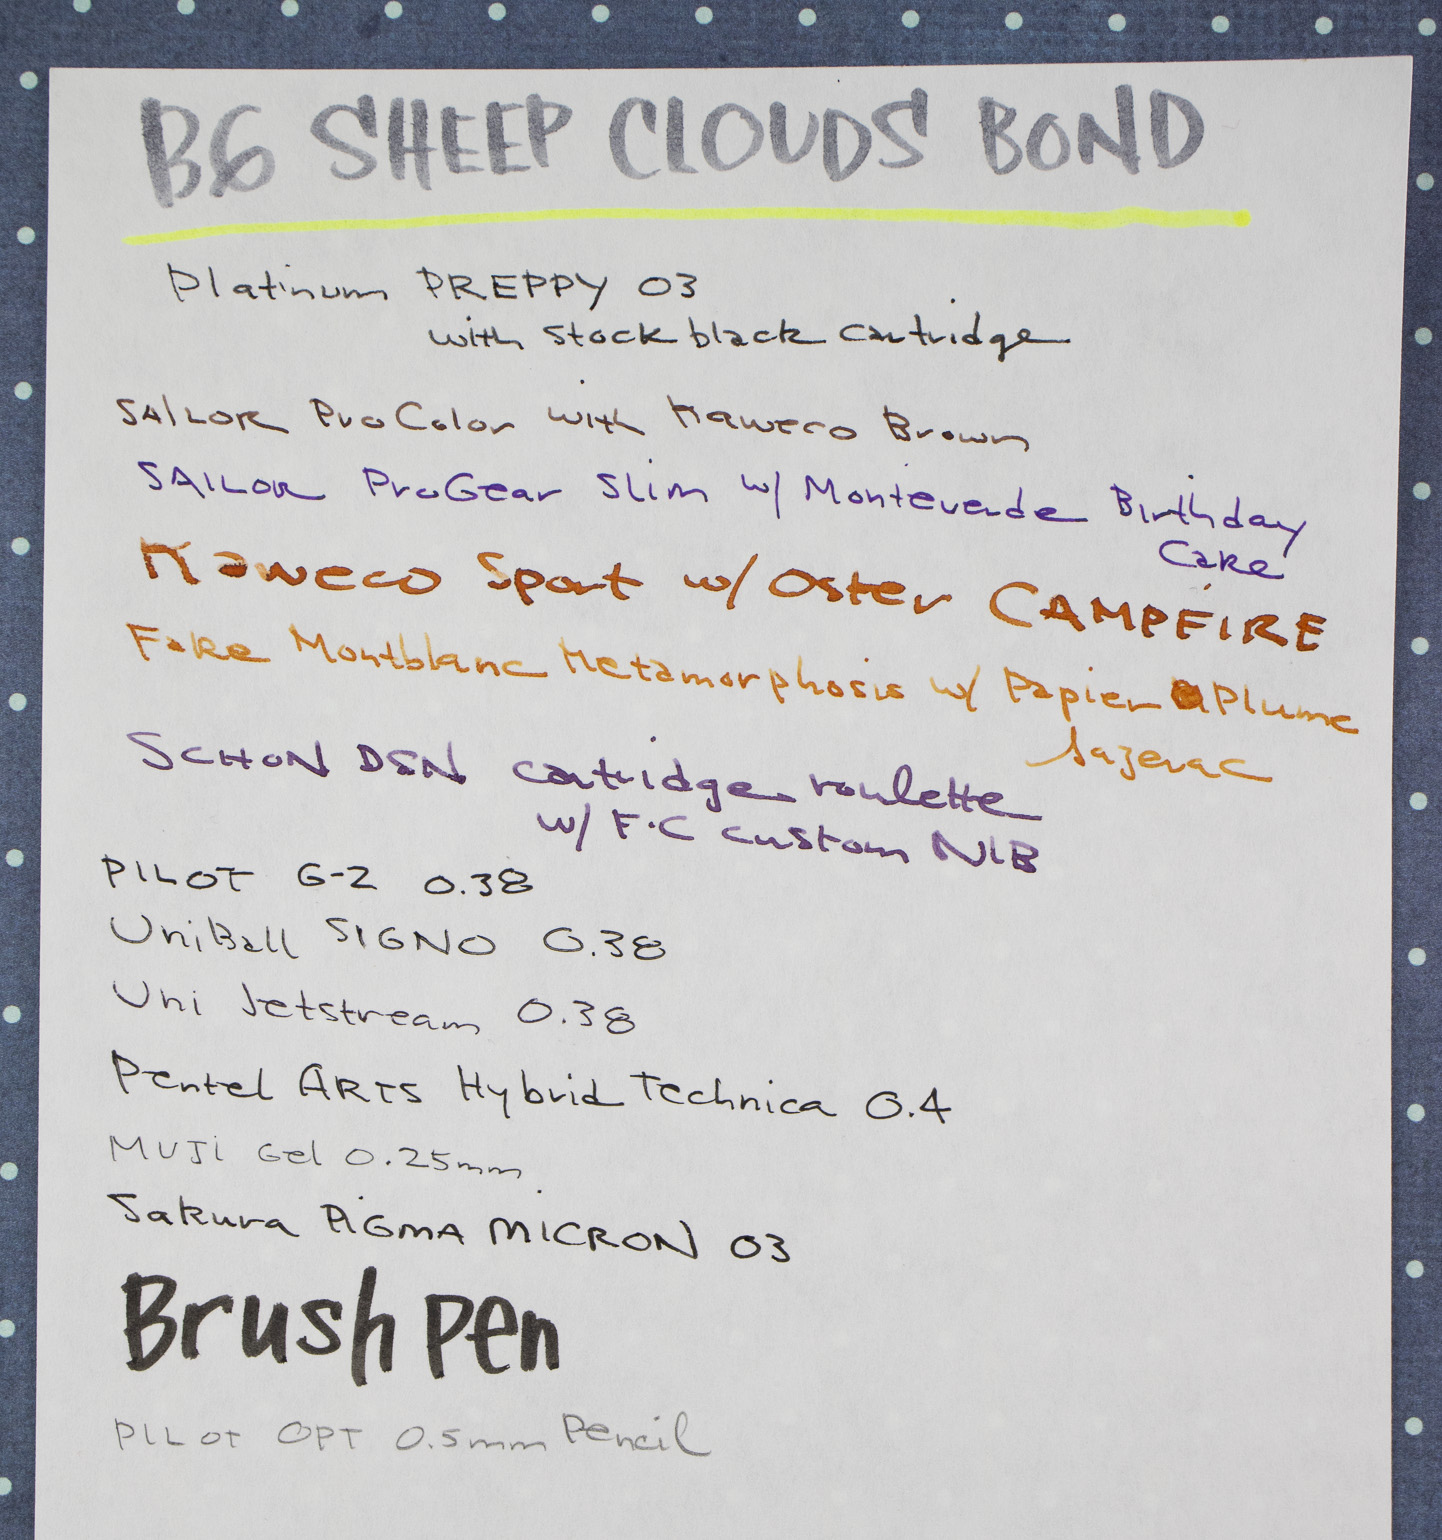 B6 SHEEP CLOUDS BOND
Platinum PREPPY 03
with stock black cartridge
SAILOR ProColor with Kaweco Brown
SAILOR ProGear Slim w/ Monteverde Birthday
Cake
Kaweco Sport w/ Oster CAMPFIRE
Fake Montblanc Metamorphosis w/ Papier Plume
Sazerac
SCHON DSN cartridge roulette
w/ F.C custom NIB
PILOT G-2 0.38
UniBall SIGNO 0.38
Uni Jetstream 0.38
Pentel ARTS Hybrid Technica 0.4
MUJI Gel 0.25mm
Sakura PIGMA MICRON 03
Brush pen
PILOT OPT 0.5mm Pencil